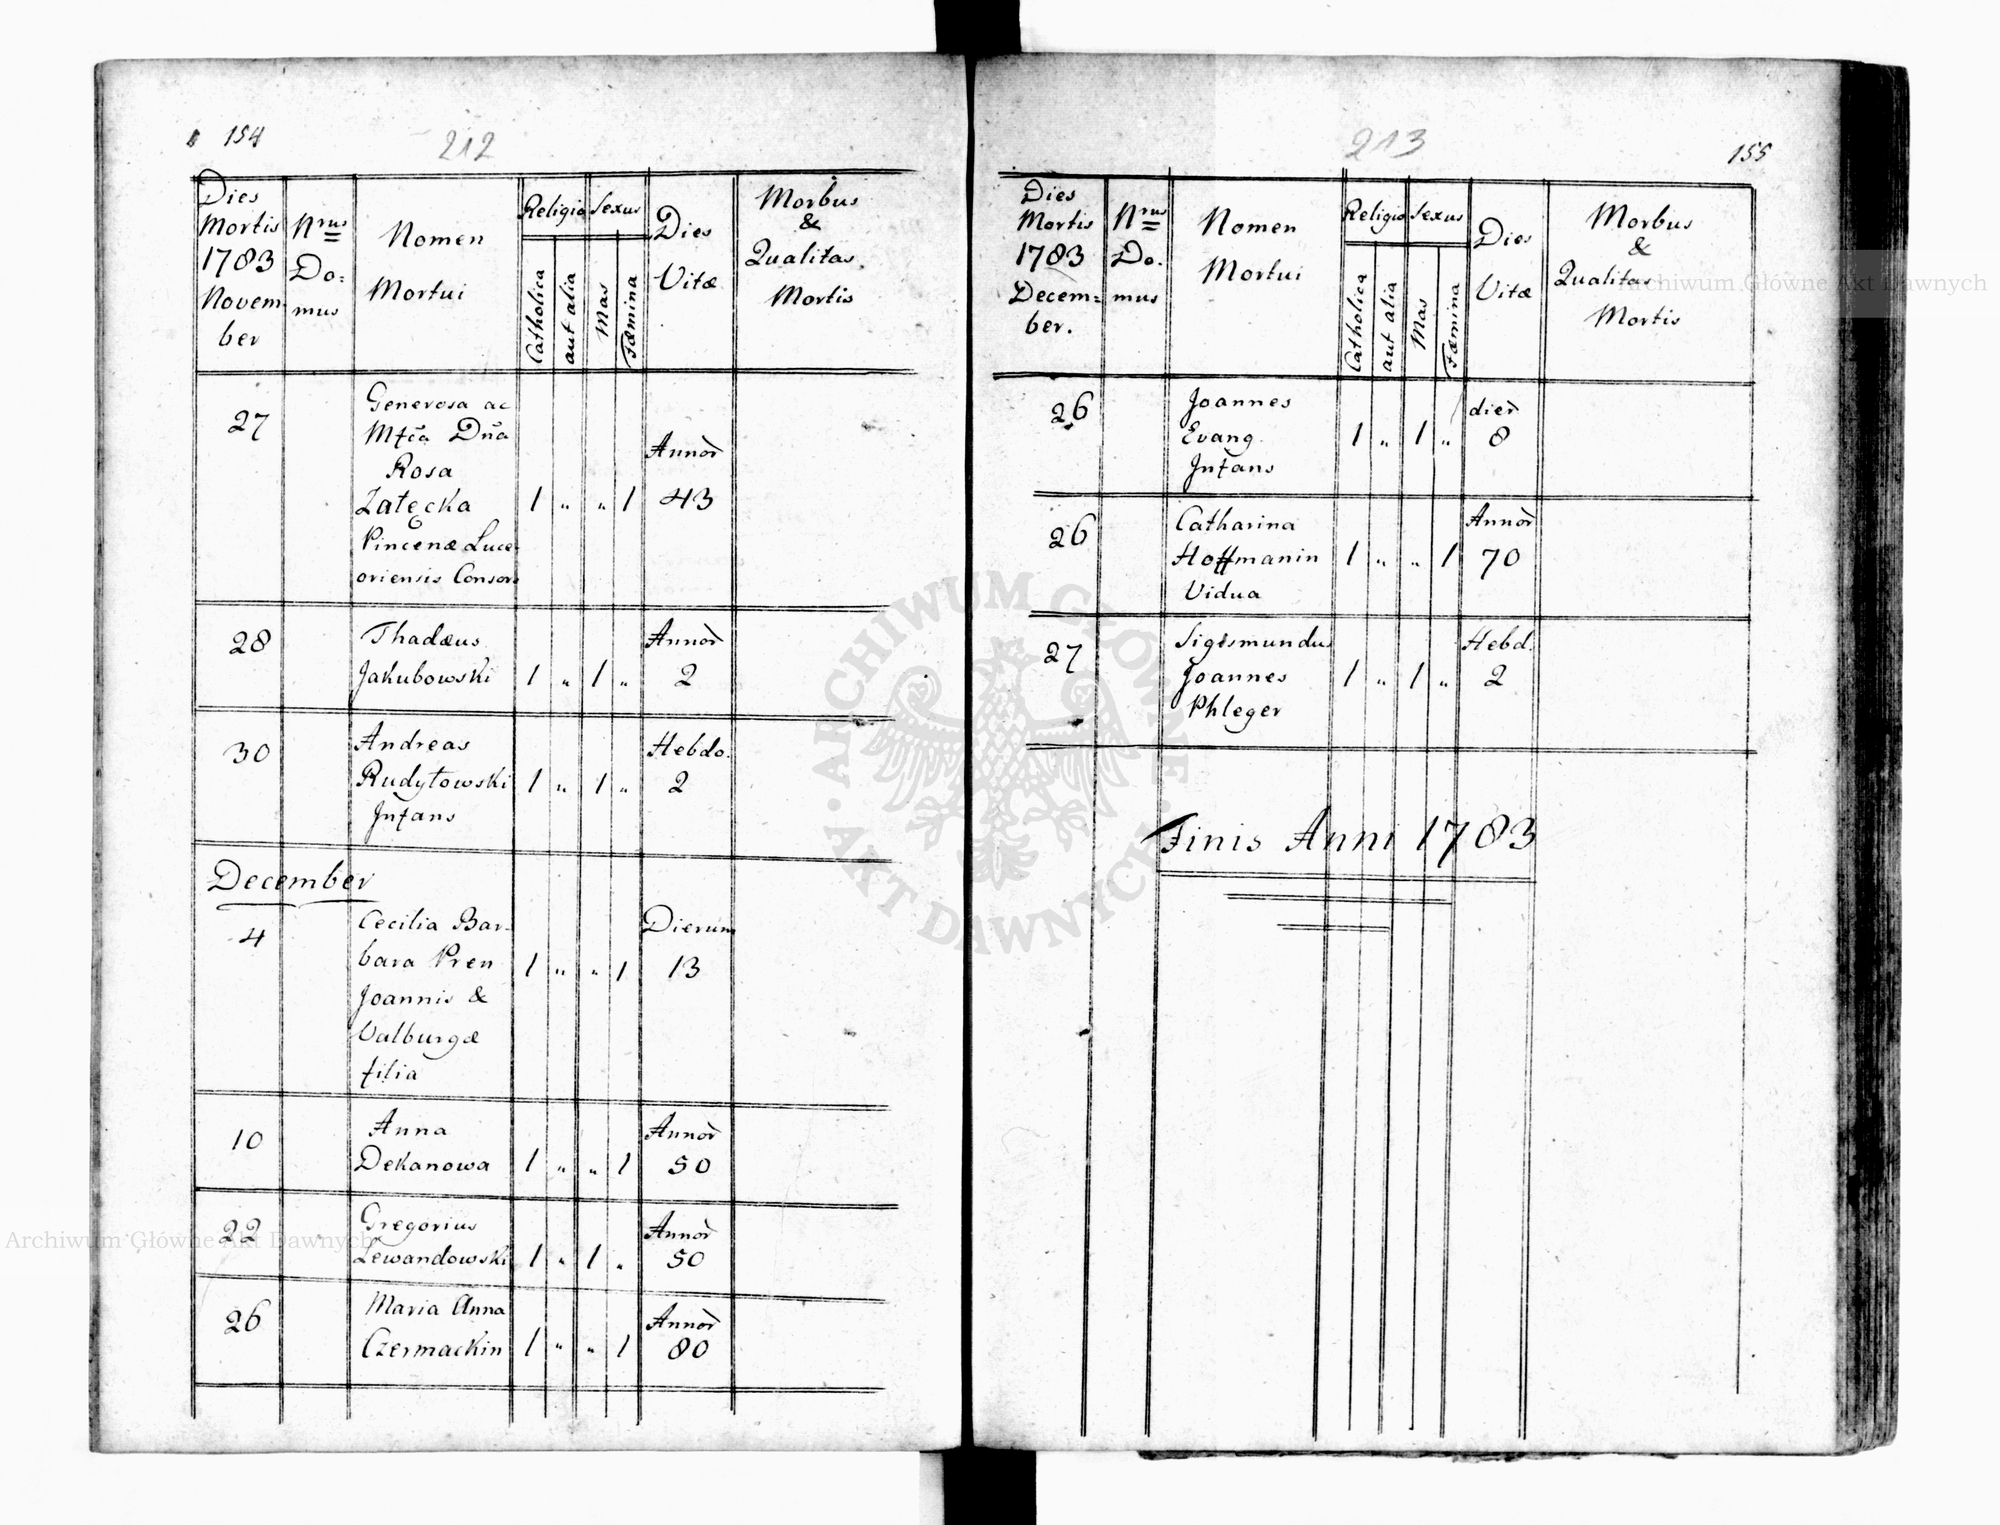 154
212
Dies
Mortis
1783
Novem-
ber
Nrus
Do:
mus
Nomen
Mortui
Religio
Catholica
aut alia
Sexus
Mas
Fæmina
Dies
Vitæ
Morbus
&
Qualitas
Mortis
27
Generosa ac
Mfca Dña
Rosa
Załęcka
Pincenæ Luce-
oriensis Consors
1 " " 1
Annor
43
28
Thadæus
Jakubowski
1 " 1 "
Annor
2
30
Andreas
Rudytowski
Infans
1 " 1 "
Hebdo.
2
December
4
Cecilia Bar-
bara Pren
Joannis &
Valburgæ
filia
1 " " 1
Dierum
13
10
Anna
Dekanowa
1 " " 1
Annor
50
22
Gregorius
Lewandowski
1 " 1 "
Annor
50
26
Maria Anna
Czermackin
1 " " 1
Annor
80
213
155
Dies
Mortis
1783
Decem=
ber.
Nrus
Do.
mus
Nomen
Mortui
Religio
Catholica
aut alia
Sexus
Mas
Fæmina
Dies
Vitæ
Morbus
&
Qualitas
Mortis
26
Joannes
Evang.
Infans
1 " 1 "
dier
8
26
Catharina
Hoffmanin
Vidua
1 " " 1
Annor
70
27
Sigismundus
Joannes
Phleger
1 " 1 "
Hebd.
2
Finis Anni 1783
Archiwum Główne Akt Dawnych
Archiwum Główne Akt Dawnych
ARCHIWUM GŁÓWNE · AKT DAWNYCH ·